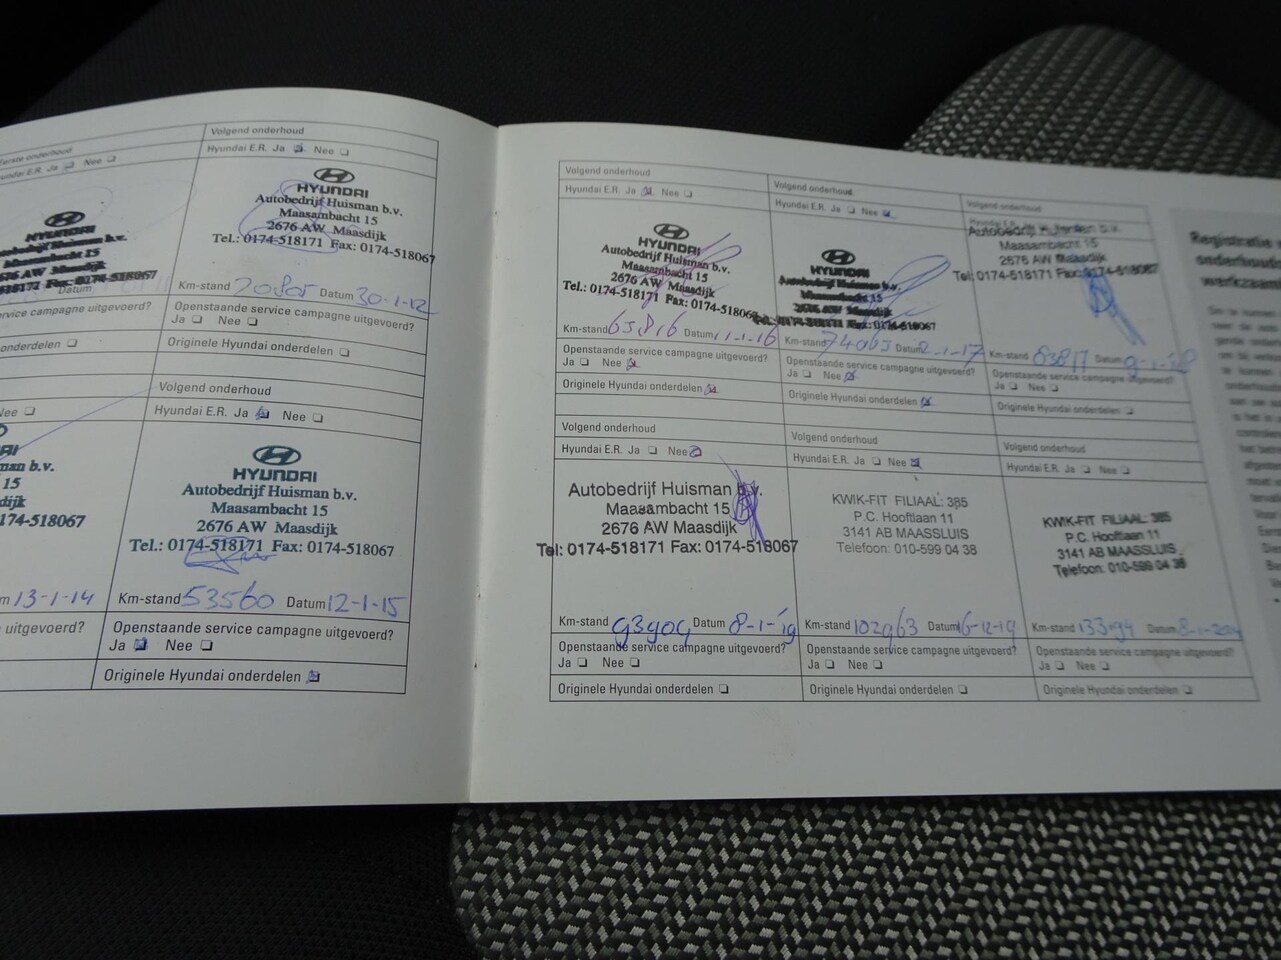 Eerste onderhoud
Hyundai E.R. Ja Nee
HYUNDAI
Autobedrijf Huisman b.v.
Maasambacht 15
2676 AW Maasdijk
Fax: 0174-518067
Datum
service campagne uitgevoerd?
onderdelen
Volgend onderhoud
Hyundai E.R. Ja Nee
HYUNDAI
Autobedrijf Huisman b.v.
Maasambacht 15
2676 AW Maasdijk
Tel.: 0174-518171 Fax: 0174-518067
Km-stand 20805 Datum 30-1-12
Openstaande service campagne uitgevoerd?
Ja Nee
Originele Hyundai onderdelen
Nee
man b.v.
15
dijk
174-518067
13-1-14
uitgevoerd?
Volgend onderhoud
Hyundai E.R. Ja Nee
HYUNDAI
Autobedrijf Huisman b.v.
Maasambacht 15
2676 AW Maasdijk
Tel.: 0174-518171 Fax: 0174-518067
Km-stand 53560 Datum 12-1-15
Openstaande service campagne uitgevoerd?
Ja Nee
Originele Hyundai onderdelen
Volgend onderhoud
Hyundai E.R. Ja Nee
HYUNDAI
Autobedrijf Huisman b.v.
Maasambacht 15
2676 AW Maasdijk
Tel.: 0174-518171 Fax: 0174-518067
Km-stand 65816 Datum 11-1-16
Openstaande service campagne uitgevoerd?
Ja Nee
Originele Hyundai onderdelen
Volgend onderhoud
Hyundai E.R. Ja Nee
HYUNDAI
Autobedrijf Huisman b.v.
Maasambacht 15
2676 AW Maasdijk
Tel.: 0174-518171 Fax: 0174-518067
Km-stand 74063 Datum 2-1-17
Openstaande service campagne uitgevoerd?
Ja Nee
Originele Hyundai onderdelen
Volgend onderhoud
Hyundai E.R. Ja Nee
Autobedrijf Huisman b.v.
Maasambacht 15
2676 AW Maasdijk
Tel.: 0174-518171 Fax: 0174-518067
Km-stand Datum
Openstaande service campagne uitgevoerd?
Ja Nee
Originele Hyundai onderdelen
Volgend onderhoud
Hyundai E.R. Ja Nee
Autobedrijf Huisman b.v.
Maasambacht 15
2676 AW Maasdijk
Tel.: 0174-518171 Fax: 0174-518067
Km-stand 93909 Datum 8-1-19
Openstaande service campagne uitgevoerd?
Ja Nee
Originele Hyundai onderdelen
Volgend onderhoud
Hyundai E.R. Ja Nee
KWIK-FIT FILIAAL: 385
P.C. Hooftlaan 11
3141 AB MAASSLUIS
Telefoon: 010-599 04 38
Km-stand 102963 Datum 16-12-19
Openstaande service campagne uitgevoerd?
Ja Nee
Originele Hyundai onderdelen
Volgend onderhoud
Hyundai E.R. Ja Nee
KWIK-FIT FILIAAL: 385
P.C. Hooftlaan 11
3141 AB MAASSLUIS
Telefoon: 010-599 04 38
Km-stand Datum
Openstaande service campagne uitgevoerd?
Ja Nee
Originele Hyundai onderdelen
Registratie
onderhouds
werkzaam